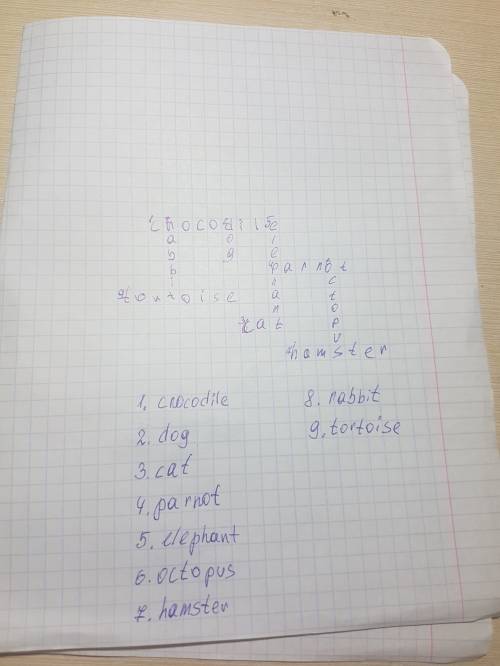 crocodile
a o l
b g e
b parrot
i h c
tortoise a t
n o
cat p
u
hamster
1. crocodile
2. dog
3. cat
4. parrot
5. elephant
6. octopus
7. hamster
8. rabbit
9. tortoise